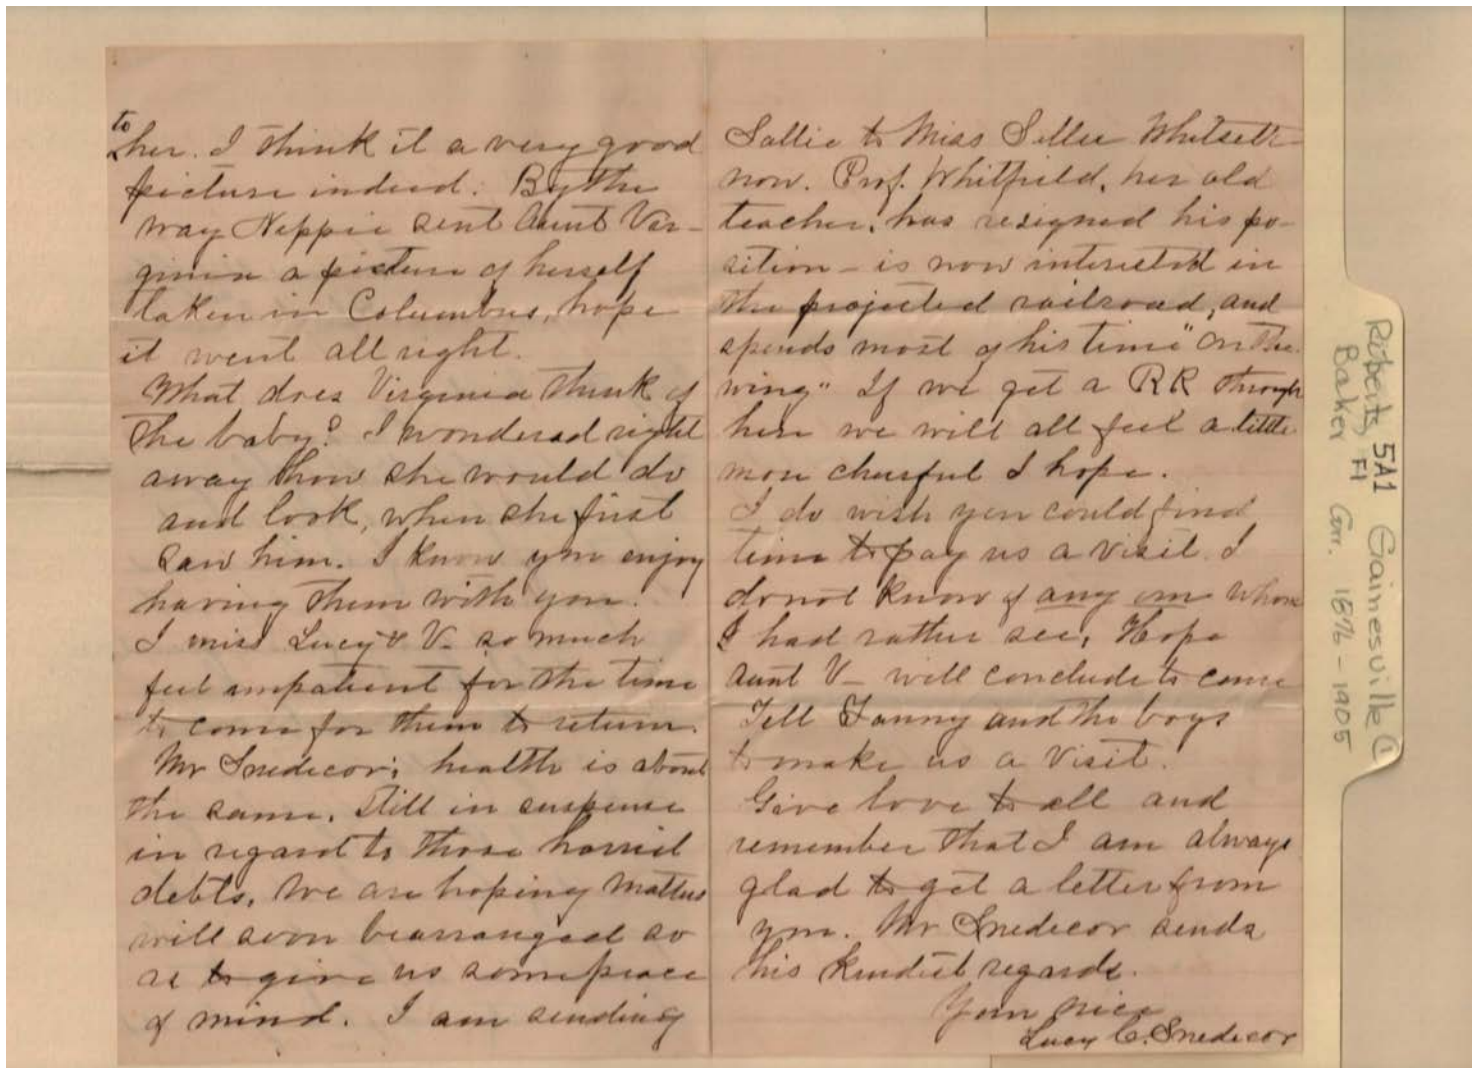 to
her. I think it a very good
picture indeed. By the
way Neppie sent Aunt Vir-
ginia a picture of herself
taken in Columbus, hope
it went all right.
What does Virginia think of
the baby? I wondered right
away how she would do
and look, when she first
saw him. I know you enjoy
having them with you.
I miss Lucy & V- so much
feel impatient for the time
to come for them to return.
Mr Snedecor's health is about
the same. Still in suspense
in regard to those horrid
debts. We are hoping matters
will soon be arranged so
as to give us some peace
of mind. I am sending
Sallie to Miss Whitsett
now. Prof. Whitfield, her old
teacher, has resigned his po-
sition - is now interested in
the projected railroad, and
spends most of his time "on the
wing" If we get a RR through
here we will all feel a little
more cheerful I hope.
I do wish you could find
time to pay us a visit. I
do not know of any one whom
I had rather see. Hope
Aunt V- will conclude to come
Tell Fanny and the boys
to make us a visit.
Give love to all and
remember that I am always
glad to get a letter from
you. Mr Snedecor sends
his kindest regards.
Your niece
Lucy C. Snedecor
5A1 Gainesville ①
Roberts, Fl
Baker Corr. 1876-1905